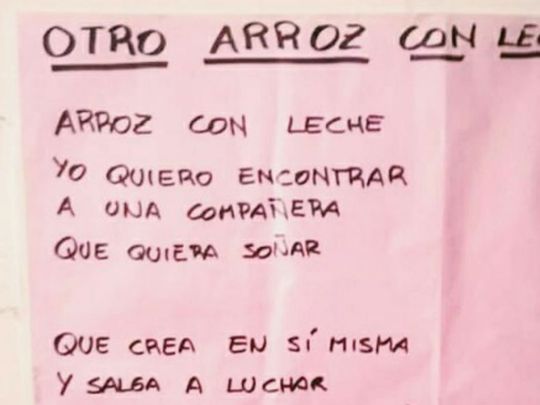 OTRO ARROZ CON LE
ARROZ CON LECHE
YO QUIERO ENCONTRAR
A UNA COMPAÑERA
QUE QUIERA SOÑAR
QUE CREA EN SÍ MISMA
Y SALGA A LUCHAR